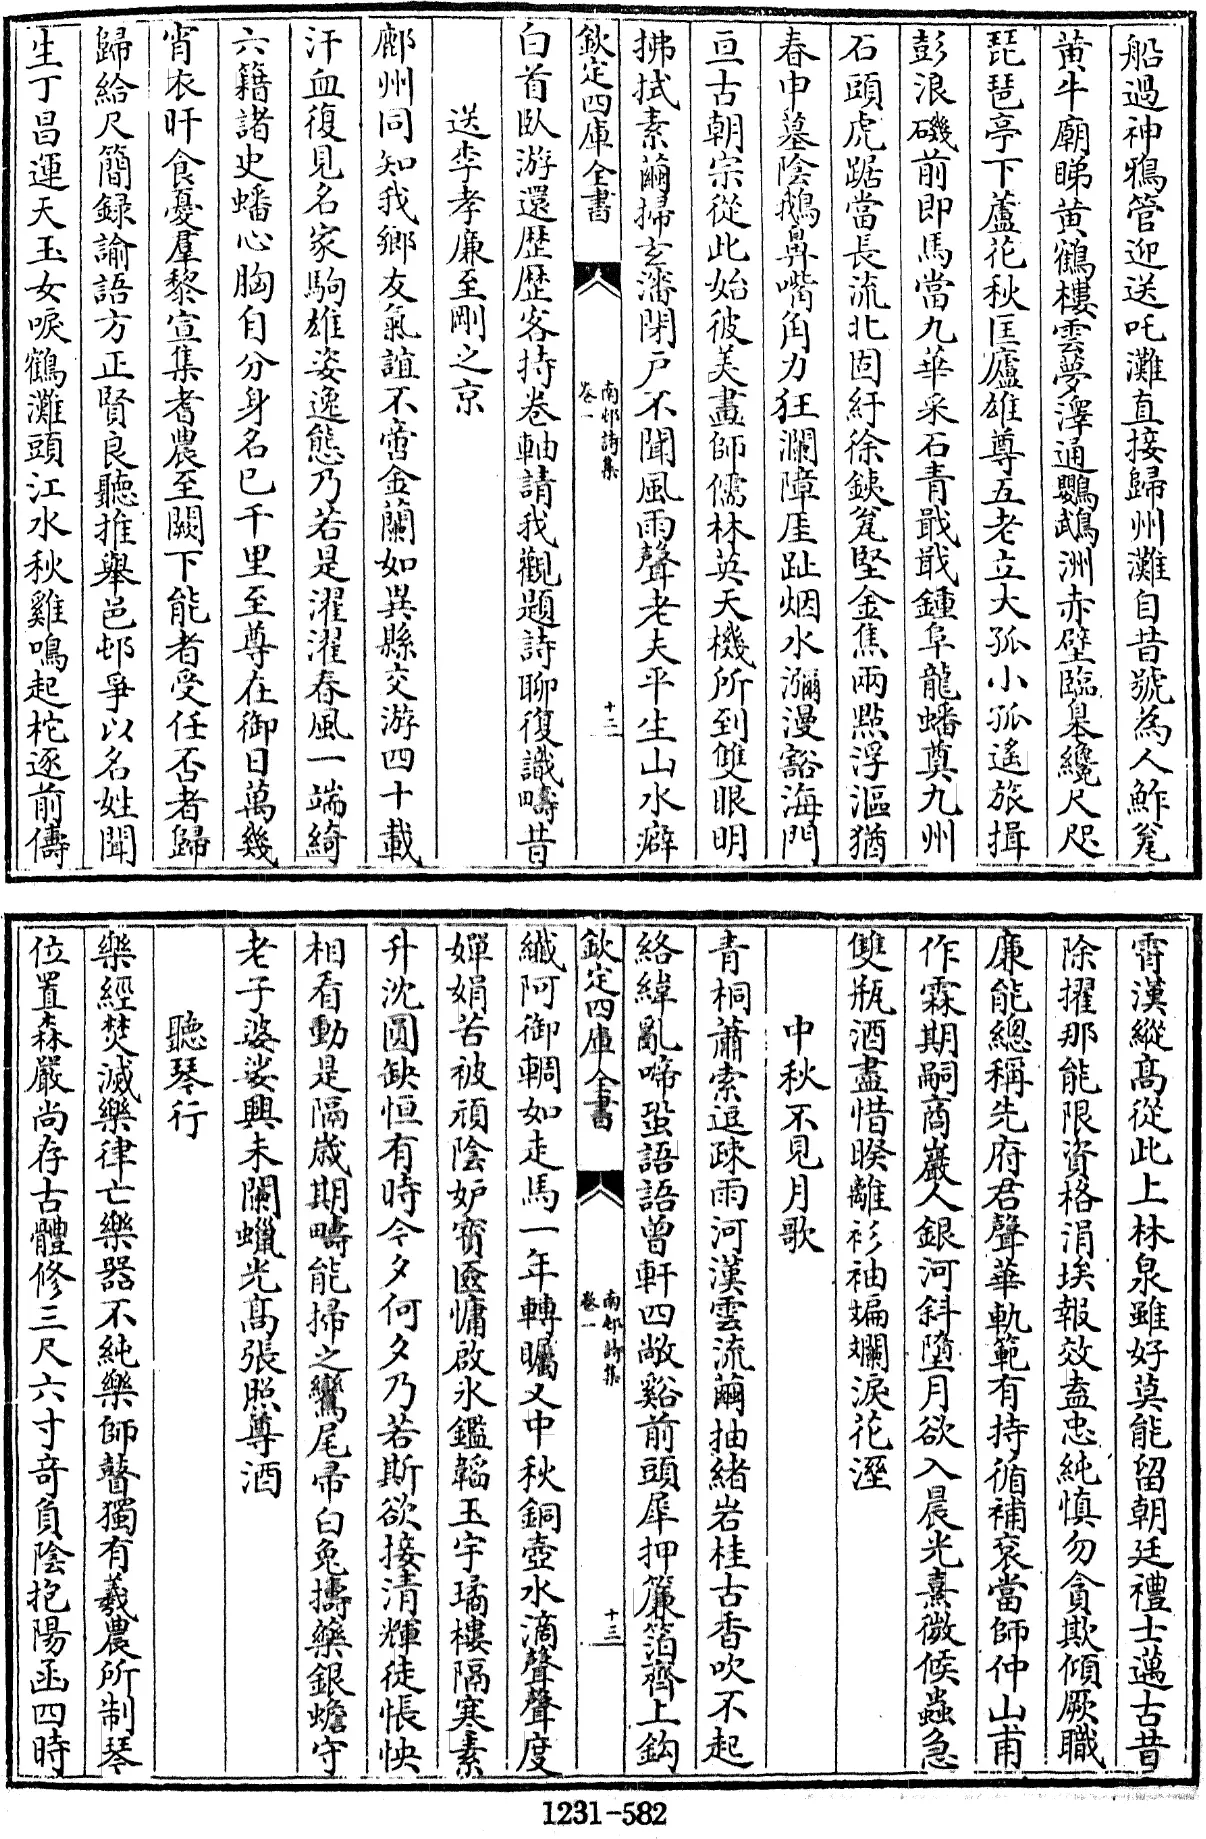 船過神鴉管迎送吒灘直接歸州灘自昔號為人鮓瓮
黄牛廟睇黄鶴樓雲夢澤通鸚鵡洲赤壁臨臯纜尺咫
琵琶亭下蘆花秋匡廬雄尊五老立大孤小孤遙旅揖
彭浪磯前即馬當九華采石青戢戢鍾阜龍蟠奠九州
石頭虎踞當長流北固紆徐鐵瓮堅金焦兩點浮漚猶
春申墓陰鵝鼻嘴角力狂瀾障厓趾烟水瀰漫豁海門
亘古朝宗從此始彼美畫師儒林英天機所到雙眼明
拂拭素繭掃玄瀋閉户不聞風雨聲老夫平生山水癖
欽定四庫全書
南邨詩集
卷一
十二
白首臥游還歴歴客持卷軸請我觀題詩聊復識疇昔
送李孝廉至剛之京
鄜州同知我鄉友氣誼不啻金蘭如異縣交游四十載
汗血復見名家駒雄姿逸態乃若是濯濯春風一端綺
六籍諸史蟠心胸自分身名已千里至尊在御日萬幾
宵衣旰食憂羣黎宣集耆農至闕下能者受任否者歸
歸給尺簡録諭語方正賢良聽推舉邑邨爭以名姓聞
生丁昌運天玉女唳鶴灘頭江水秋雞鳴起柁逐前儔
霄漢縱髙從此上林泉雖好莫能留朝廷禮士邁古昔
除擢那能限資格涓埃報效盍忠純慎勿貪欺傾厥職
廉能總稱先府君聲華軌範有持循補衮當師仲山甫
作霖期嗣商巖人銀河斜墮月欲入晨光熹微候蟲急
雙瓶酒盡惜暌離衫袖斒斕淚花溼
中秋不見月歌
青桐蕭索逗疎雨河漢雲流繭抽緒岩桂古香吹不起
絡緯亂啼蛩語語曾軒四敞谿前頭犀押簾箔齊上鈎
欽定四庫全書
南邨詩集
卷一
十三
纖阿御輖如走馬一年轉矚又中秋銅壺水滴聲聲度
嬋娟苦被頑陰妒寳匳慵啟氷鑑韜玉宇璚樓隔寒素
升沈圓缺恒有時今夕何夕乃若斯欲接清輝徒悵怏
相看動是隔歲期疇能掃之鸞尾帚白兔擣藥銀蟾守
老子婆娑興未闌蠟光髙張照尊酒
聽琴行
樂經焚滅樂律亡樂器不純樂師瞽獨有羲農所制琴
位置森嚴尚存古體修三尺六寸奇負陰抱陽函四時
1231-582